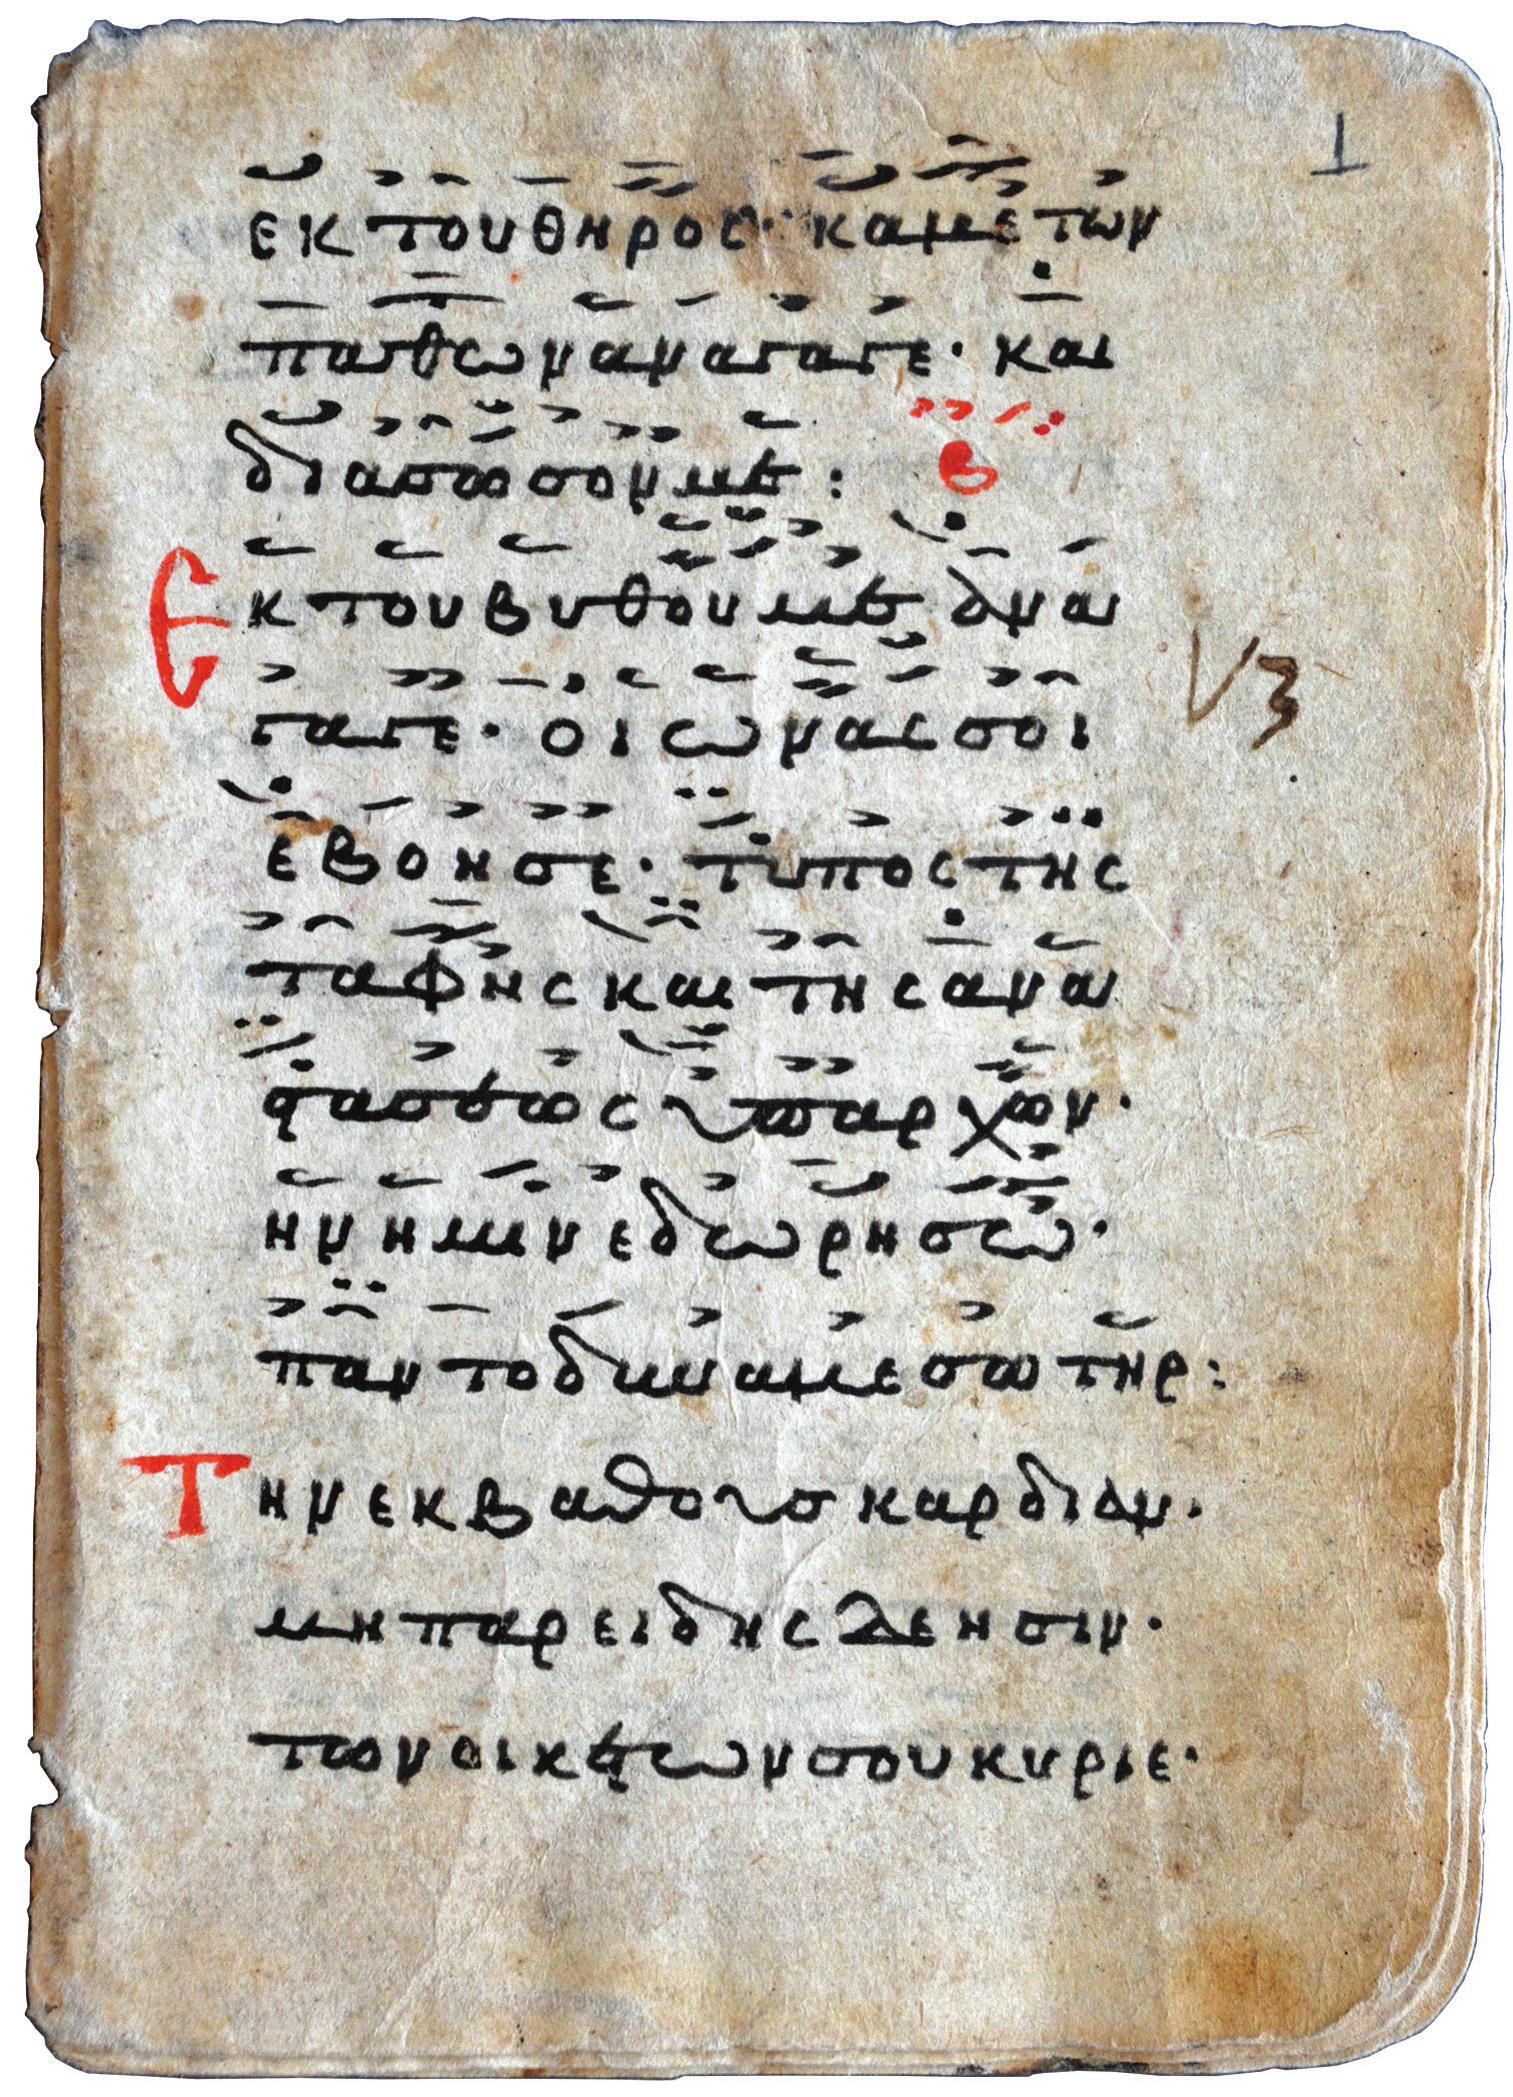 1
εκ του θηρος· καμε των
παθων αναγαγε· και
διασωσον με : β
Εκ του βυθου με ανα
γαγε· ο ιωνας σοι
εβοησε· τυπος της
ταφης και της ανα
στασεως υπαρχων·
ην ημιν εδωρησω·
V3
παντοδυναμε σωτηρ :
Την εκ βαθους καρδιαν·
μη παρειδης δεησιν·
των οικετων σου κυριε·